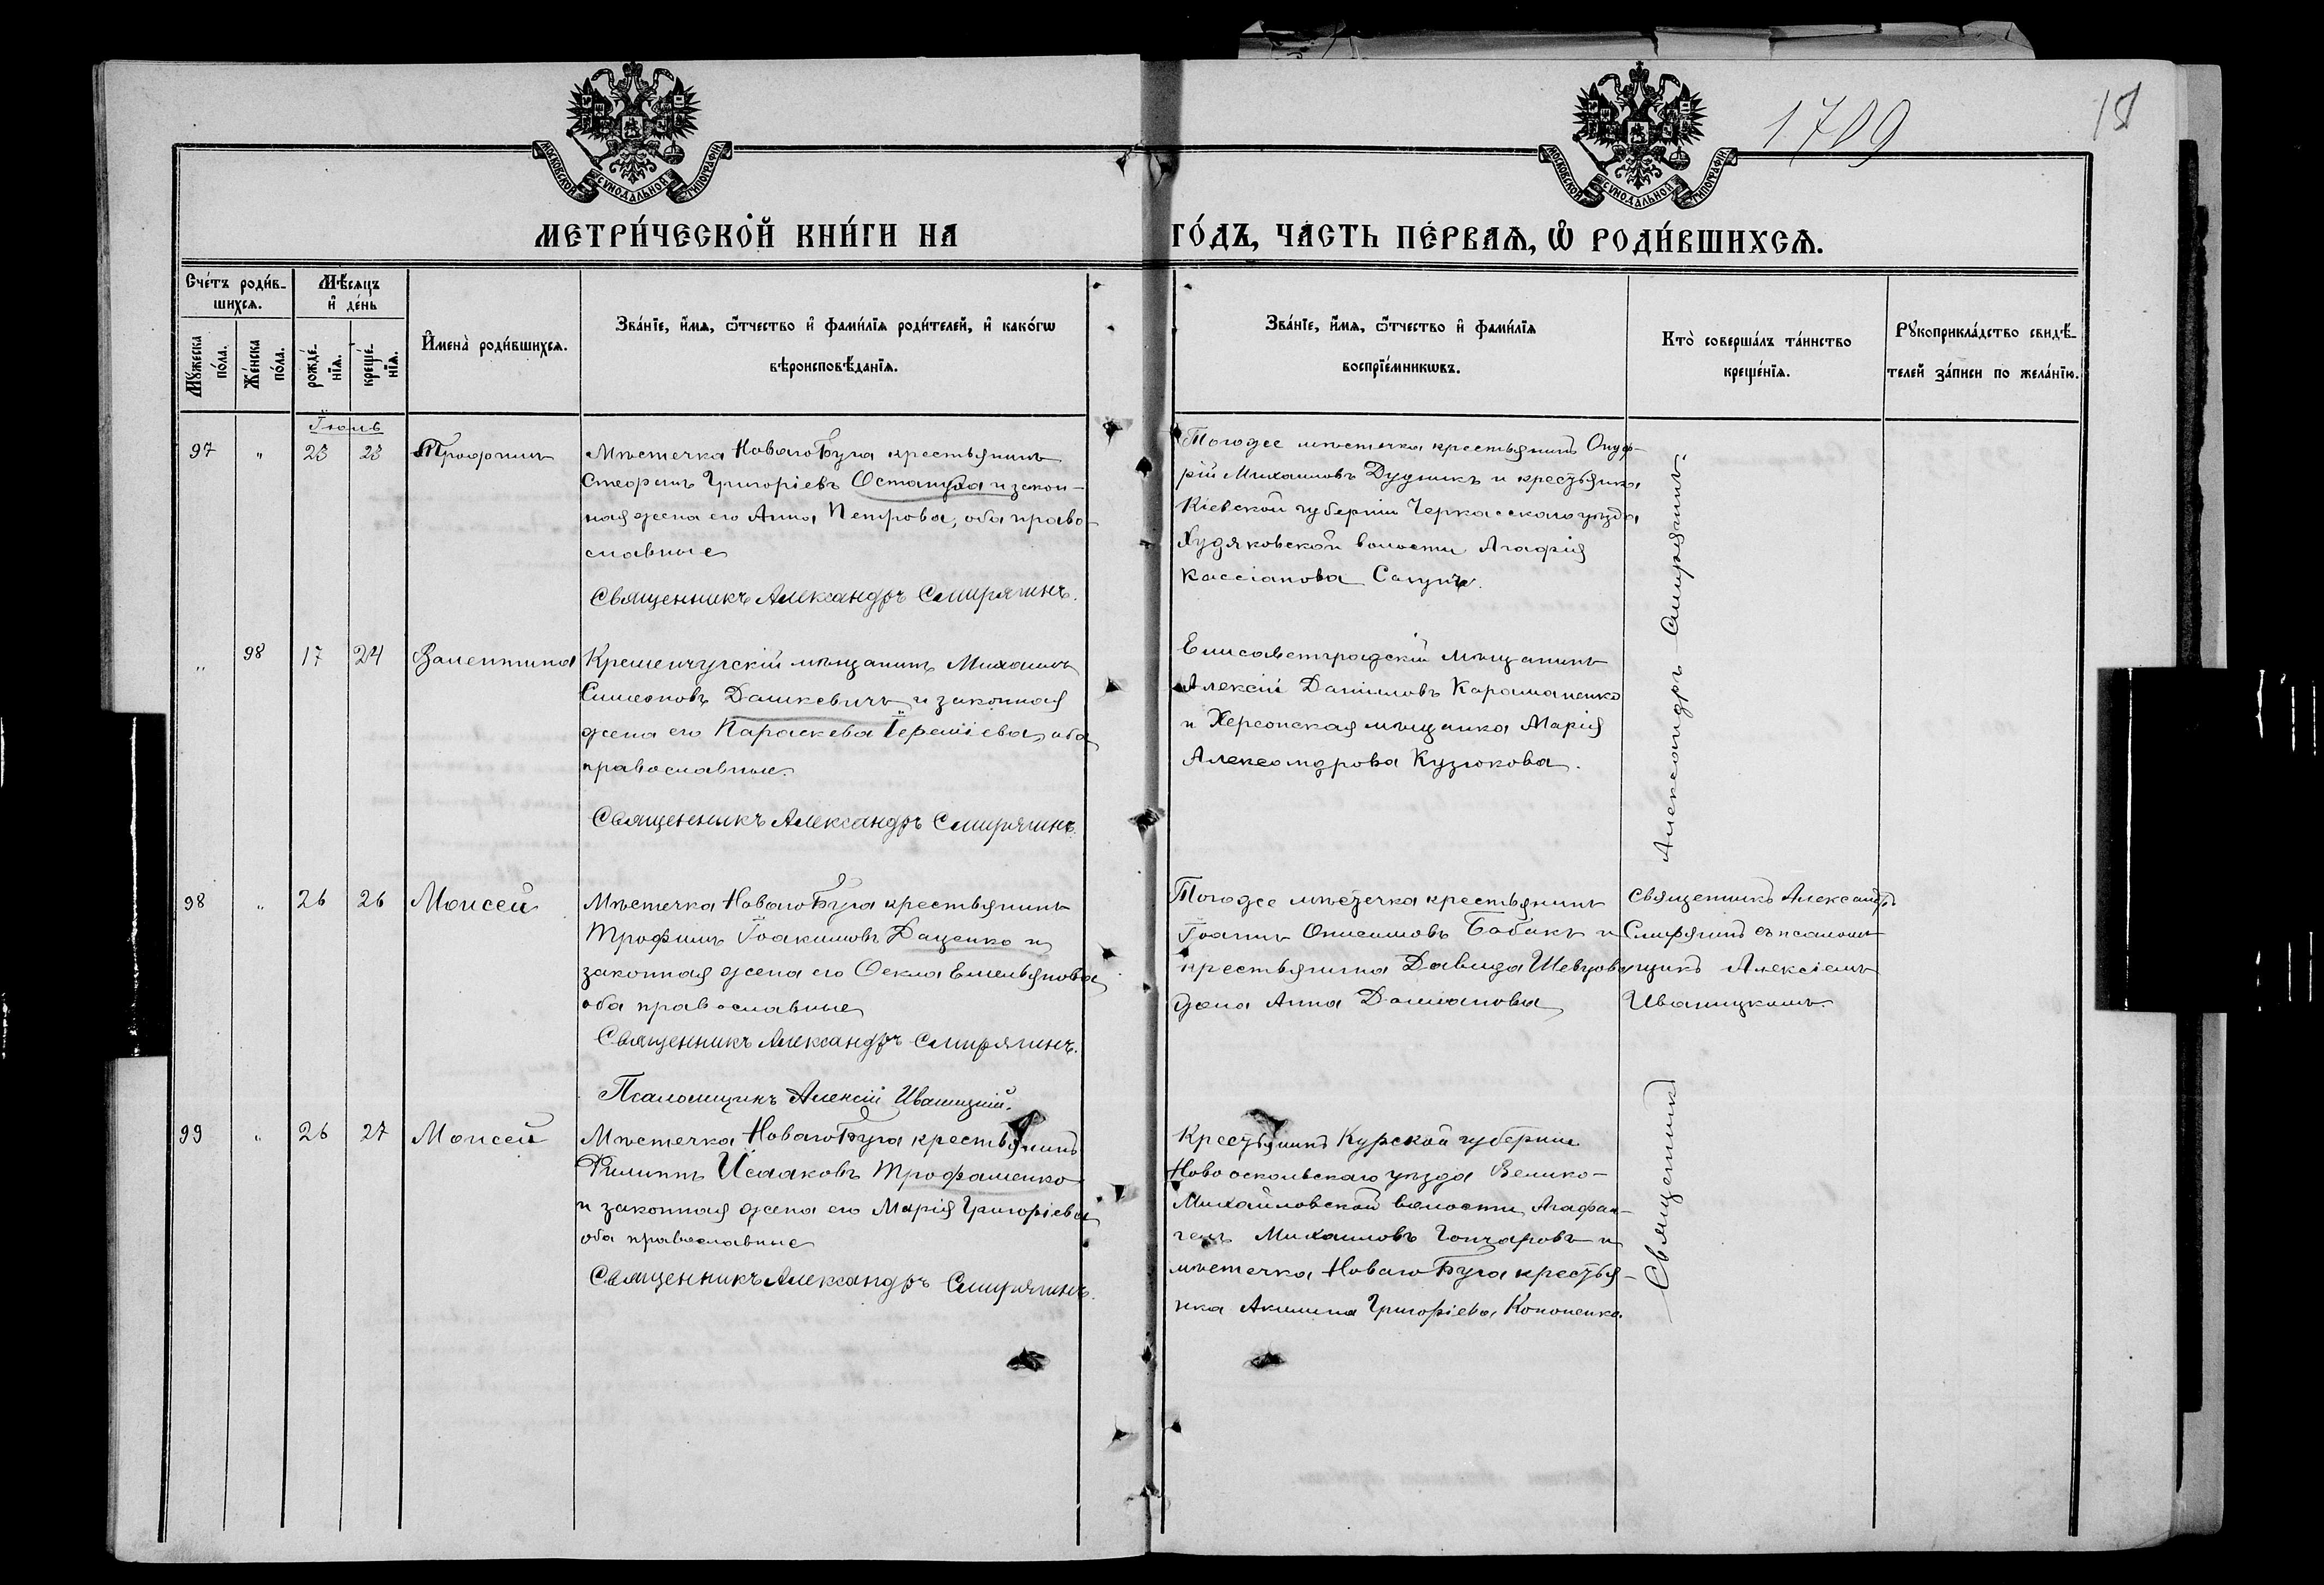 1709
18
МОСКОВСКОЙ СѴНОДАЛЬНОЙ ТИПОГРАФІИ.
МОСКОВСКОЙ СѴНОДАЛЬНОЙ ТИПОГРАФІИ.
МЕТРИ́ЧЕСКОЙ КНИ́ГИ НА ГО́ДЪ, ЧА́СТЬ ПЕ́РВАѦ, Ѡ҆ РОДИ́ВШИХСѦ.
Сче́тъ роди́в-
шихсѧ.
Мѣ́сѧцъ
и҆ де́нь
Мꙋ́жеска
по́ла.
Же́нска
по́ла.
рожде́-
нїѧ.
креще́-
нїѧ.
И҆мена̀ роди́вшихсѧ.
Зва́нїе, и҆́мѧ, ѻ҆́тчество и҆ фами́лїѧ роди́телей, и҆ како́гѡ
вѣроисповѣ́данїѧ.
Зва́нїе, и҆́мѧ, ѻ҆́тчество и҆ фами́лїѧ
воспрїе́мникѡвъ.
Кто̀ соверша́лъ та́инство
креще́нїѧ.
Рꙋкоприкла́дство свидѣ́-
телей за́писи по жела́нїю.
Іюль
97 " 23 23 Трофимъ
Мѣстечка Новаго Буга крестьянинъ
Стефанъ Григоріевъ Остапуха и закон-
ная жена его Анна Петрова, оба право-
славные
Священникъ Александръ Смирягинъ.
Тогоже мѣстечка крестьянинъ Онуф-
рій Михаиловъ Дудникъ и крестьянка
Кіевской губерніи Черкасскаго уѣзда
Худяковской волости Агафія
Кассіанова Сагунъ.
" 98 17 24 Валентина
Кременчугскій мѣщанинъ Михаилъ
Симеоновъ Дашкевичъ и законная
жена его Параскева Іереміева, оба
православные.
Священникъ Александръ Смирягинъ.
Елисаветградскій мѣщанинъ
Алексій Даніиловъ Караманенко
и Херсонская мѣщанка Марія
Александрова Кузюкова.
98 " 26 26 Моисей
Мѣстечка Новаго Буга крестьянинъ
Трофимъ Іоакимовъ Даценко и
законная жена его Ѳекла Емельянова
оба православные
Священникъ Александръ Смирягинъ.
Псаломщикъ Алексій Иваницкій.
Тогоже мѣстечка крестьянинъ
Іоаннъ Онисимовъ Бабакъ и
крестьянина Давида Шевцова
жена Анна Даміанова
Священникъ Александръ
Смирягинъ съ псалом-
щикъ Алексіемъ
Иваницкимъ.
99 " 26 27 Моисей
Мѣстечка Новаго Буга крестьянинъ
Филиппъ Исааковъ Трофаменко
и законная жена его Марія Григоріева
оба православные
Священникъ Александръ Смирягинъ.
Крестьянинъ Курской губерніи
Новооскольскаго уѣзда Велико-
Михайловской волости Агафан-
гелъ Михаиловъ Гончаровъ и
мѣстечка Новаго Буга крестья-
нка Акилина Григоріева Кононенко.
Священникъ Александръ Смирягинъ.